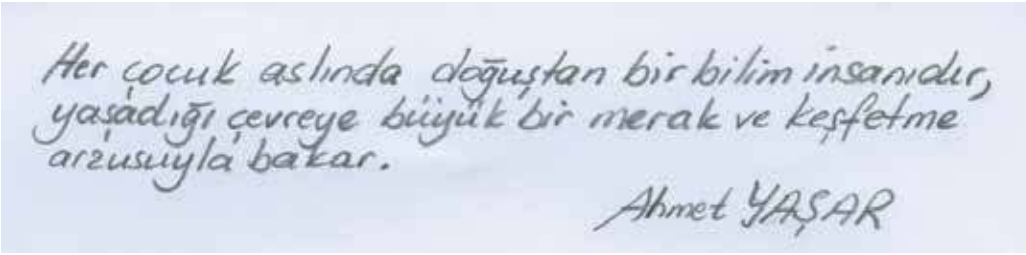 Her çocuk aslında doğuştan bir bilim insanıdır,
yaşadığı çevreye büyük bir merak ve keşfetme
arzusuyla bakar.
Ahmet YAŞAR